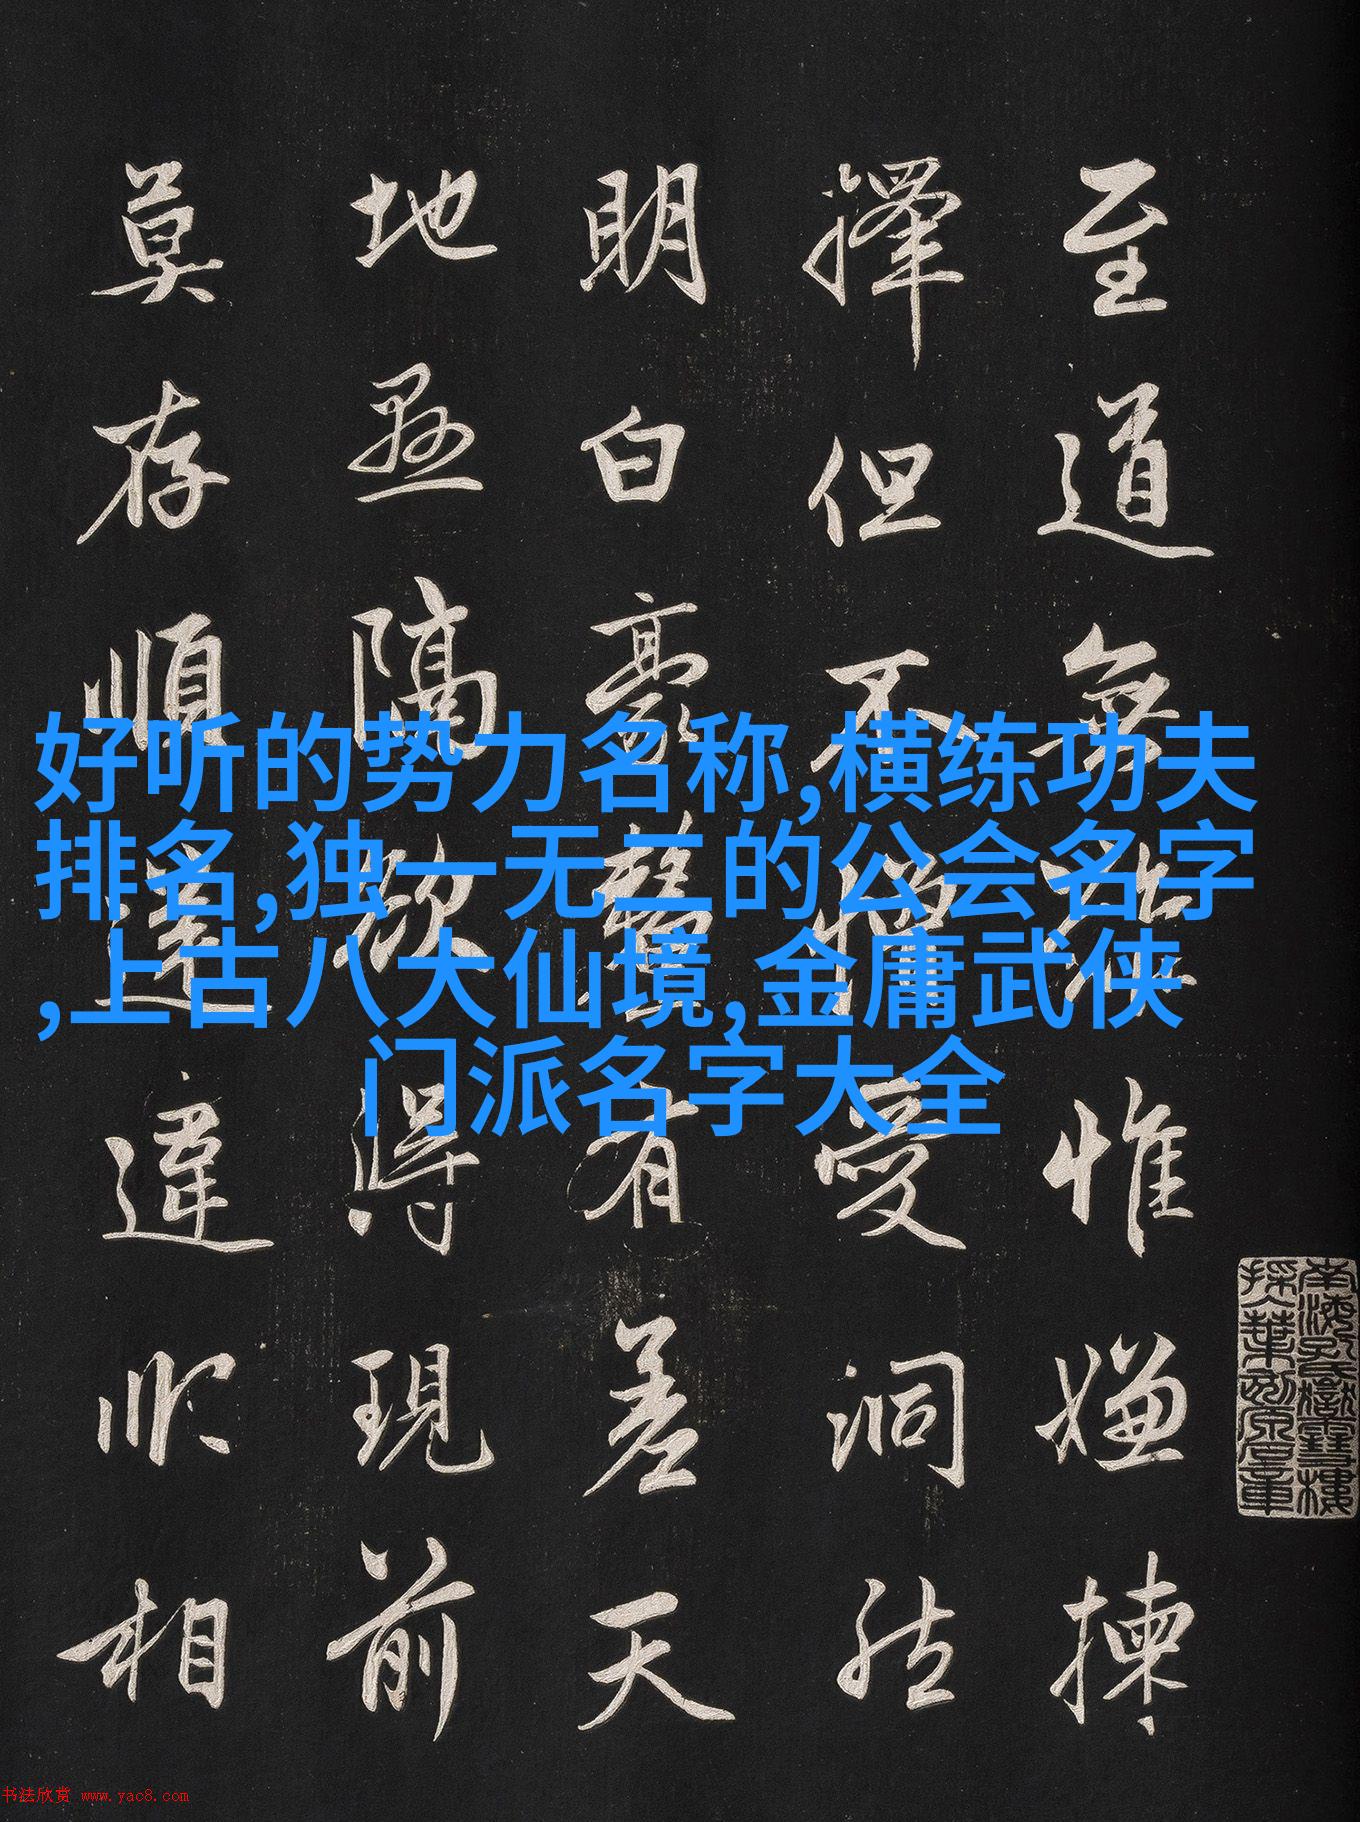 至道無難惟嫌揀
擇但不憎愛洞然
明白毫釐有差天
地懸隔欲得現前
莫存順逆違順相
好听的势力名称,横练功夫
排名,独一无二的公会名字
,上古八大仙境,金庸武侠
门派名字大全
南海孔氏嶽雪樓
书法欣赏 www.yac8.com